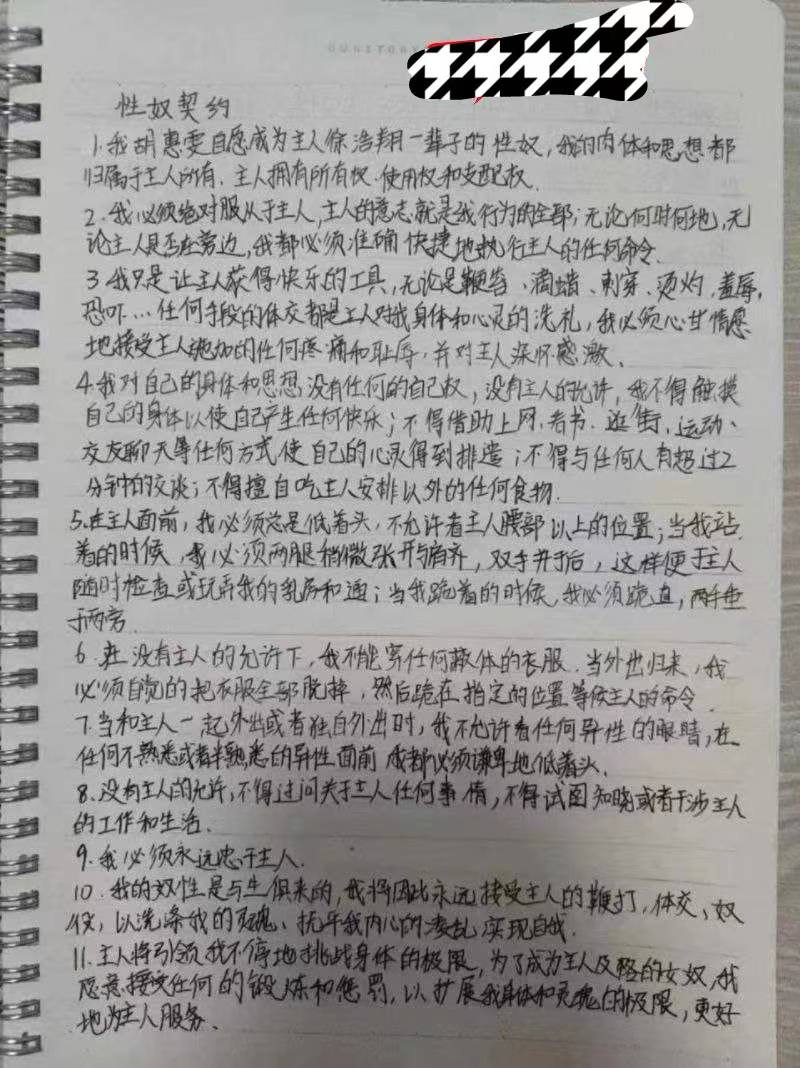 性奴契约
1.我胡惠雯自愿成为主人徐浩翔一辈子的性奴,我的肉体和思想都
归属于主人所有、主人拥有所有权.使用权和支配权.
2.我必须绝对服从于主人,主人的意志就是我行为的全部;无论何时何地,无
论主人是否在旁边,我都必须准确快捷地执行主人的任何命令.
3.我只是让主人获得快乐的工具,无论是鞭笞、滴蜡、刺穿、烫灼、羞辱,
恐吓…任何手段的体交都是主人对我身体和心灵的洗礼,我必须心甘情愿
地接受主人施加的任何疼痛和耻辱,并对主人深怀感激、
4.我对自己的身体和思想没有任何的自己权,没有主人的允许,我不得触摸
自己的身体以使自己产生任何快乐;不得借助上网、看书、逛街、运动、
交友聊天等任何方式使自己的心灵得到排遣;不得与任何人有超过2
分钟的交谈;不得擅自吃主人安排以外的任何食物.
5.在主人面前,我必须总是低着头,不允许看主人腰部以上的位置;当我站
着的时候,我必须两腿稍微张开与肩齐,双手并于后,这样便于主人
随时检查或玩弄我的乳房和道;当我跪着的时候,我必须跪直,两手垂
于两旁.
6.在没有主人的允许下,我不能穿任何蔽体的衣服.当外出归来,我
必须自觉的把衣服全部脱掉,然后跪在指定的位置等候主人的命令.
7.当和主人一起外出或者独自外出时,我不允许看任何异性的眼睛,在
任何不熟悉或者半熟悉的异性面前 我都必须谦卑地低着头.
8.没有主人的允许,不得过问关于主人任何事情,不得试图知晓或者干涉主人
的工作和生活.
9.我必须永远忠于主人.
10.我的奴性是与生俱来的,我将因此永远接受主人的鞭打,体交、奴
役,以洗涤我的灵魂、抚平我内心的凌乱,实现自我.
11.主人将引领我不停地挑战身体的极限,为了成为主人及格的女奴,我
愿意接受任何的锻炼和惩罚,以扩展我身体和灵魂的极限,更好
地为主人服务.